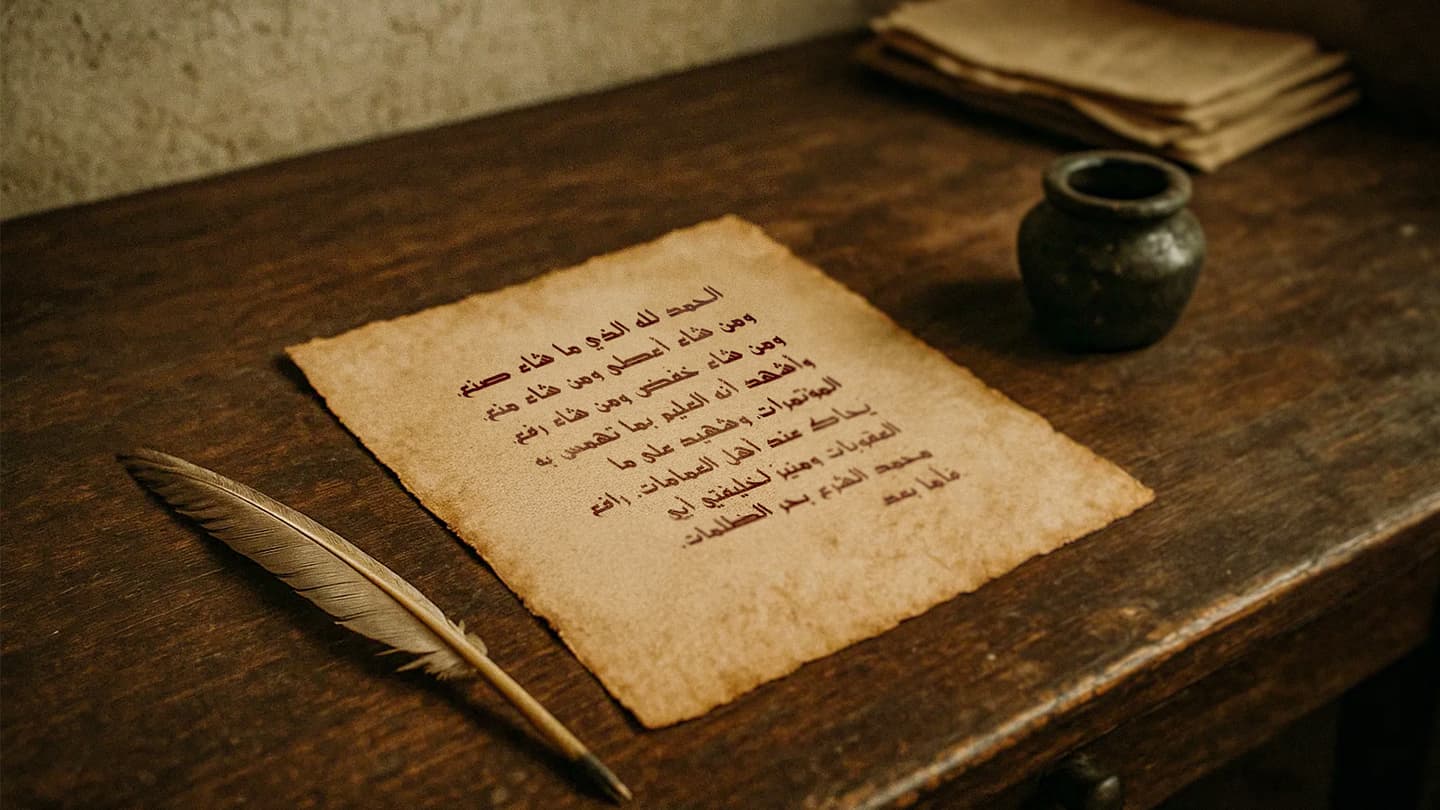 الحمد لله الذي ما شاء صنع،
ومن شاء أعطى ومن شاء منع،
ومن شاء خفض ومن شاء رفع،
وأشهد أنه العليم بما تهمس به
المؤتمرات، وشهيد على ما
يحاك عند أهل العمامات، رافع
العقوبات ومنيز لخليفتي أبي
محمد الشرع بحر الظلمات،
فأما بعد